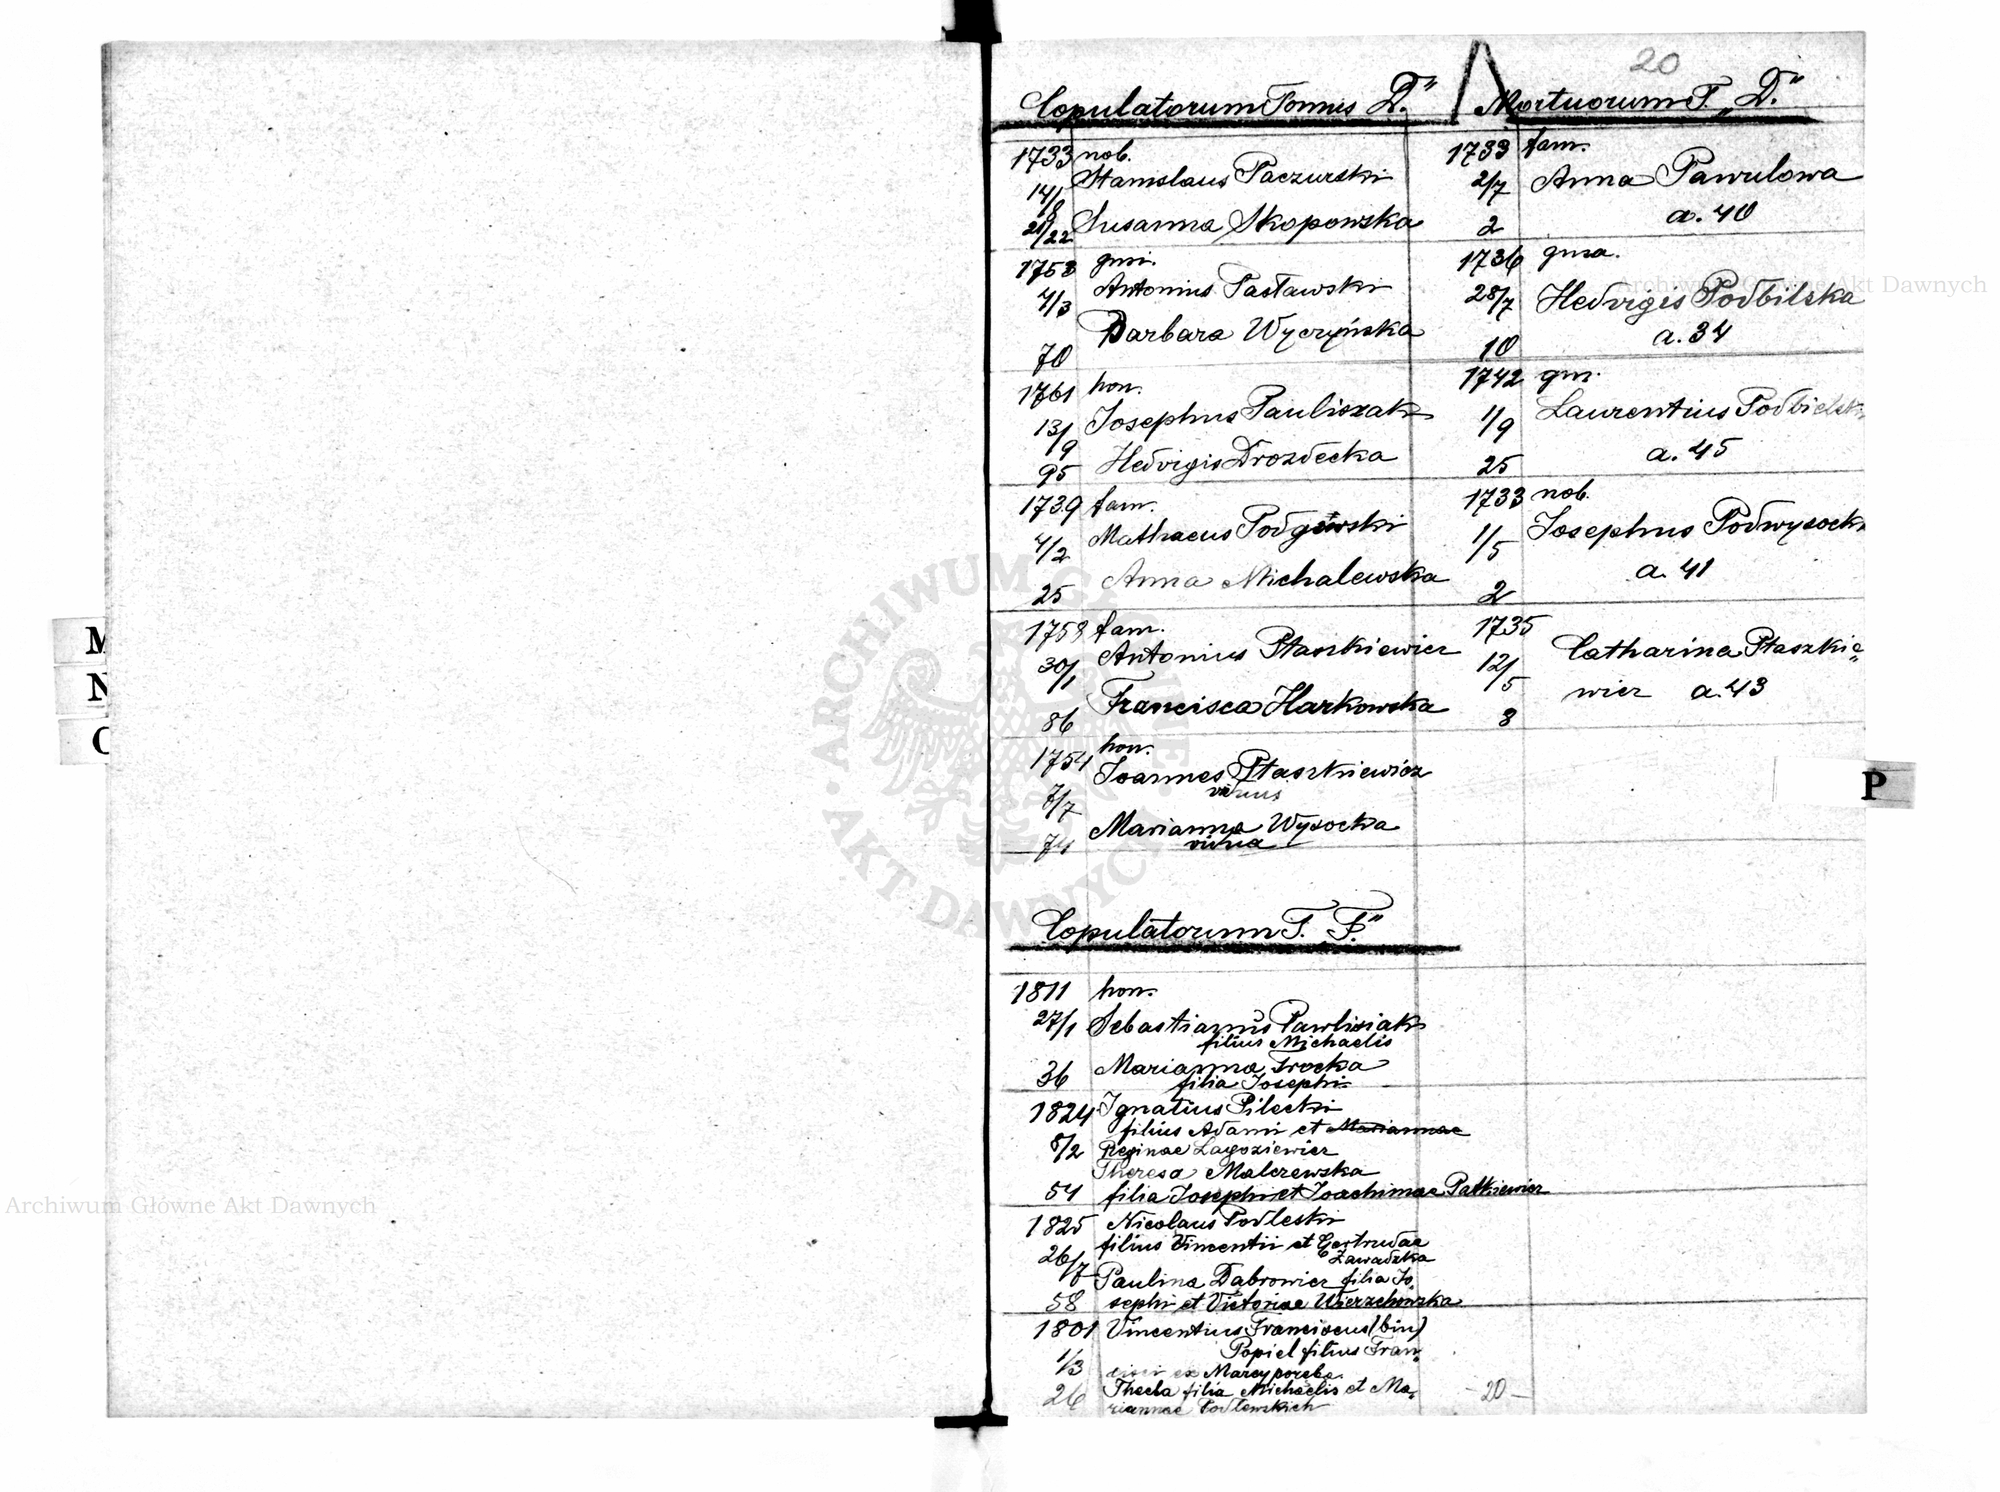 20
Copulatorum Tomus „D."
1733 nob.
14/8 Stanislaus Paczurski
21/22 Susanna Skopowska
1758 gnri.
4/3 Antonius Pasławski
Barbara Wyczyńska
70
1761 hon.
13/9 Josephus Pauliszak
95 Hedvigis Drozdecka
1739 fam.
4/2 Mathaeus Podgórski
25 Anna Michalewska
1758 fam.
30/1 Antonius Ptaszkiewicz
86 Francisca Harkowska
1754 hon.
7/7 Joannes Ptaszkiewicz
viduus
74 Marianna Wysocka
vidua
Mortuorum T. „D."
1733 fam.
2/7 Anna Pawulowa
2 a. 40
1736 gnsa.
28/7 Hedvigis Podbilska
10 a. 34
1742 gns.
1/9 Laurentius Podbielski
25 a. 45
1733 nob.
1/5 Josephus Podwysocki
a. 41
2
1735
12/5 Catharina Ptaszkie„
wicz a. 43
8
Copulatorum T. „F."
1811 hon.
27/1 Sebastianus Pawlisiak
filius Michaelis
36 Marianna Trocka
filia Josephi
1824 Ignatius Pilecki
filius Adami et Mariannae
8/2 Reginae Lagoziewicz
Theresa Malczewska
54 filia Josephi et Joachimae Patkiewicz
1825 Nicolaus Podleski
filius Vincentii et Gertrudae
26/7 Zawadzka
Paulina Dabrowicz filia Jo„
58 sephi et Victoriae Wierzchowska
1801 Vincentius Franciscus (bin)
Popiel filius Fran„
1/3 cisci ex Marcyporęba
26 Thecla filia Michaelis et Ma„
riannae Podlewskich
- 20 -
M
N
O
P
Archiwum Główne Akt Dawnych
Archiwum Główne Akt Dawnych
ARCHIWUM GŁÓWNE AKT DAWNYCH